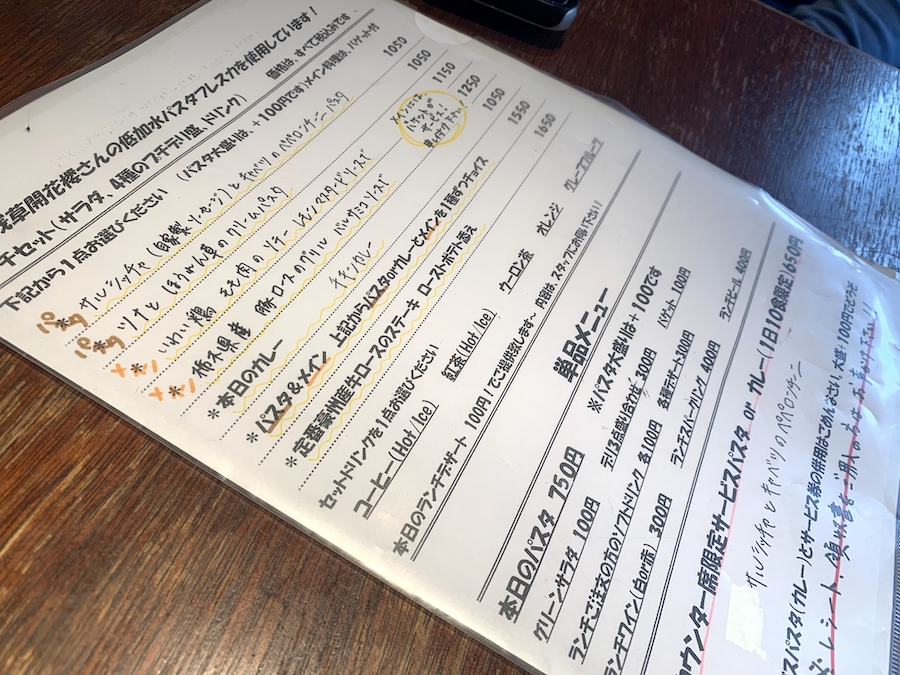 浅草開花楼さんの低加水パスタフレスカを使用しています!
チセット(サラダ、4種のプチデリ盛、ドリンク) 価格は、すべて税込みです。
下記から1点お選びください (パスタ大盛りは、+100円です)メイン料理は、バゲット付
パスタ* サルシッチャ(自家製ソーセージ)とキャベツのペペロンチーニ パスタ 1050
パスタ* ツナとほうれん草のクリームパスタ 1050
メイン* いわい鶏 もも肉のソテー レモンマスタードソースで 1150
メイン* 栃木県産 豚ロースのグリル バルサミコソースで 1250
メインには バゲットが
*本日のカレー チキンカレー 1050
*パスタ&メイン 上記からパスタorカレーとメインを1種ずつチョイス 1550
*定番豪州産牛ロースのステーキ ローストポテト添え 1650
セットドリンクを1点お選びください
コーヒー(Hot/Ice) 紅茶(Hot/Ice) ウーロン茶 オレンジ グレープフルーツ
本日のランチデザート 100円!でご提供致します~ 内容は、スタッフにお伺い下さい!
単品メニュー
本日のパスタ 750円 ※パスタ大盛りは+100円です
グリーンサラダ 100円 デリ3点盛り合わせ 300円 バゲット 100円
ランチご注文の方のソフトドリンク 各100円 各種デザート300円
ランチワイン(白or赤) 300円 ランチスパークリング 400円 ランチビール 400円
カウンター席限定サービスパスタ or カレー(1日10食限定)650円
サルシッチャとキャベツのペペロンチーニ
ビスパスタ(カレー)とサービス券の併用はごめんなさい。大盛+100円でどうぞ
※レシート、領収書をご用